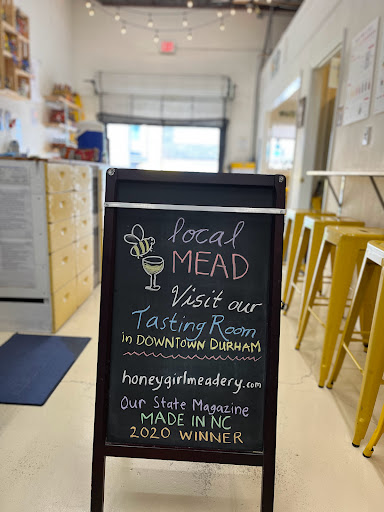 Local
MEAD
Visit our
Tasting Room
in DOWNTOWN DURHAM
honeygirlmeadery.com
Our State Magazine
MADE IN NC
2020 WINNER